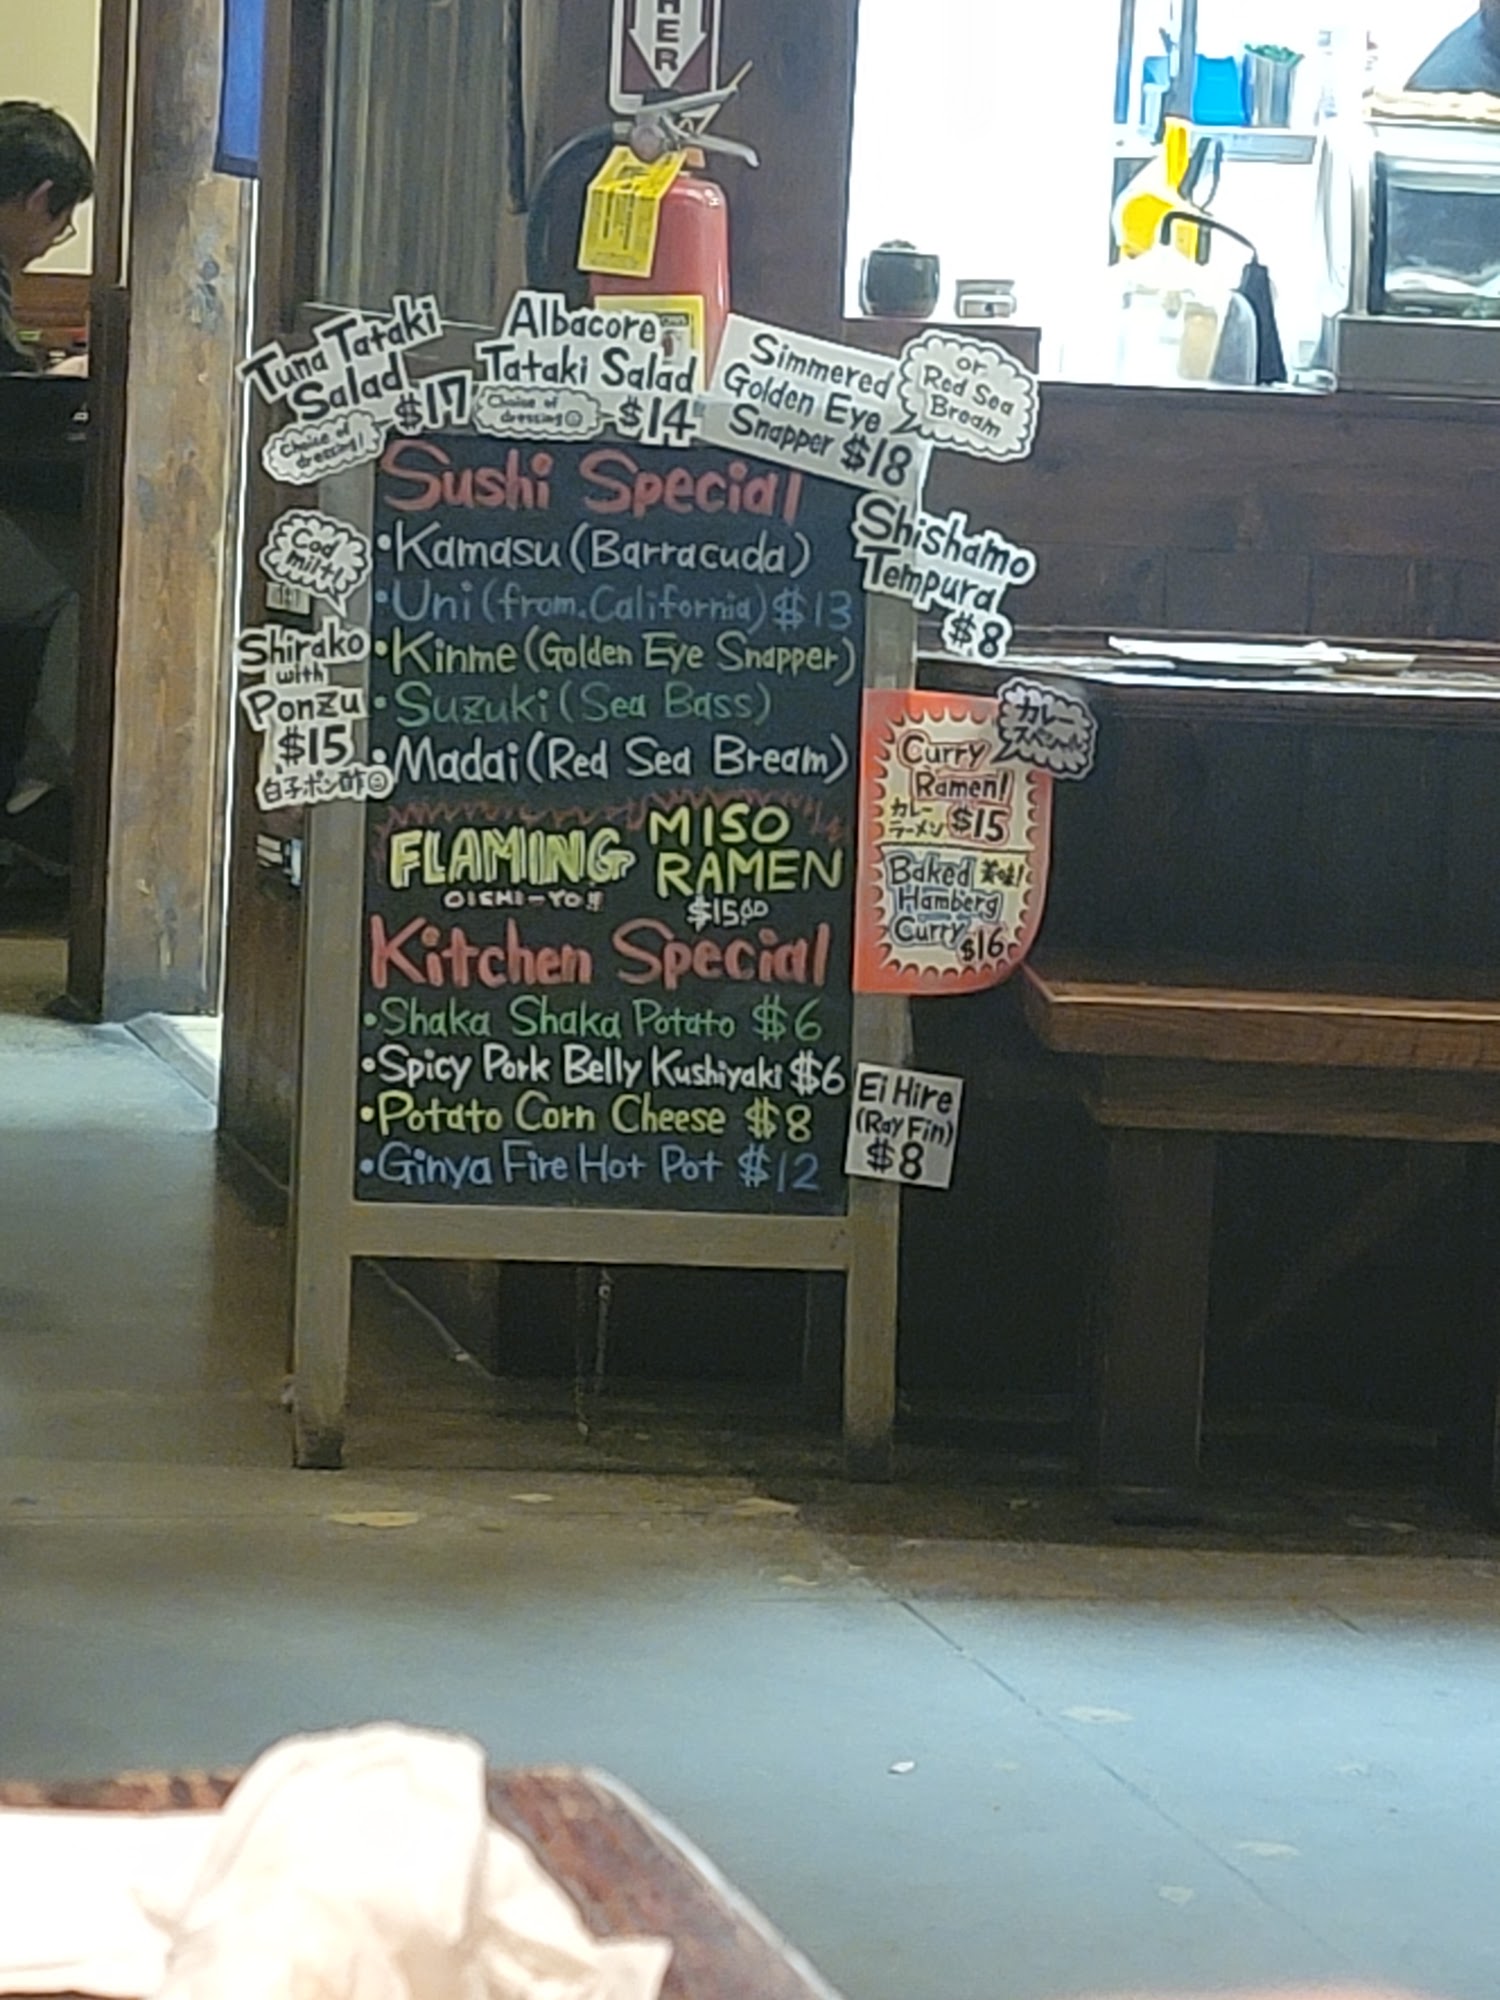 HER
Tuna Tataki
Salad
$17
choice of
dressing!
Albacore
Tataki Salad
Choice of
dressing☺
$14
Simmered
Golden Eye
Snapper $18
or
Red Sea
Bream
Sushi Special
•Kamasu (Barracuda)
•Uni (from.California) $13
•Kinme (Golden Eye Snapper)
•Suzuki (Sea Bass)
•Madai (Red Sea Bream)
Cod
milt!
Shirako
with
Ponzu
$15
白子ポン酢☺
Shishamo
Tempura
$8
カレー
スペシャル
Curry
Ramen!
カレー
ラーメン $15
Baked 美味!
Hamberg
Curry $16
FLAMING MISO
RAMEN
OICHI-YO!!
$15.00
Kitchen Special
•Shaka Shaka Potato $6
•Spicy Pork Belly Kushiyaki $6
•Potato Corn Cheese $8
•Ginya Fire Hot Pot $12
Ei Hire
(Ray Fin)
$8